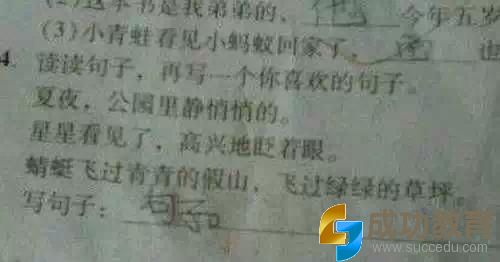 (2)这本书是我弟弟的,他 今年五岁
(3)小青蛙看见小蚂蚁回家了, 也
4. 读读句子,再写一个你喜欢的句子。
夏夜,公园里静悄悄的。
星星看见了,高兴地眨着眼。
蜻蜓飞过青青的假山,飞过绿绿的草坪。
写句子:句子
成功教育
www.succedu.com